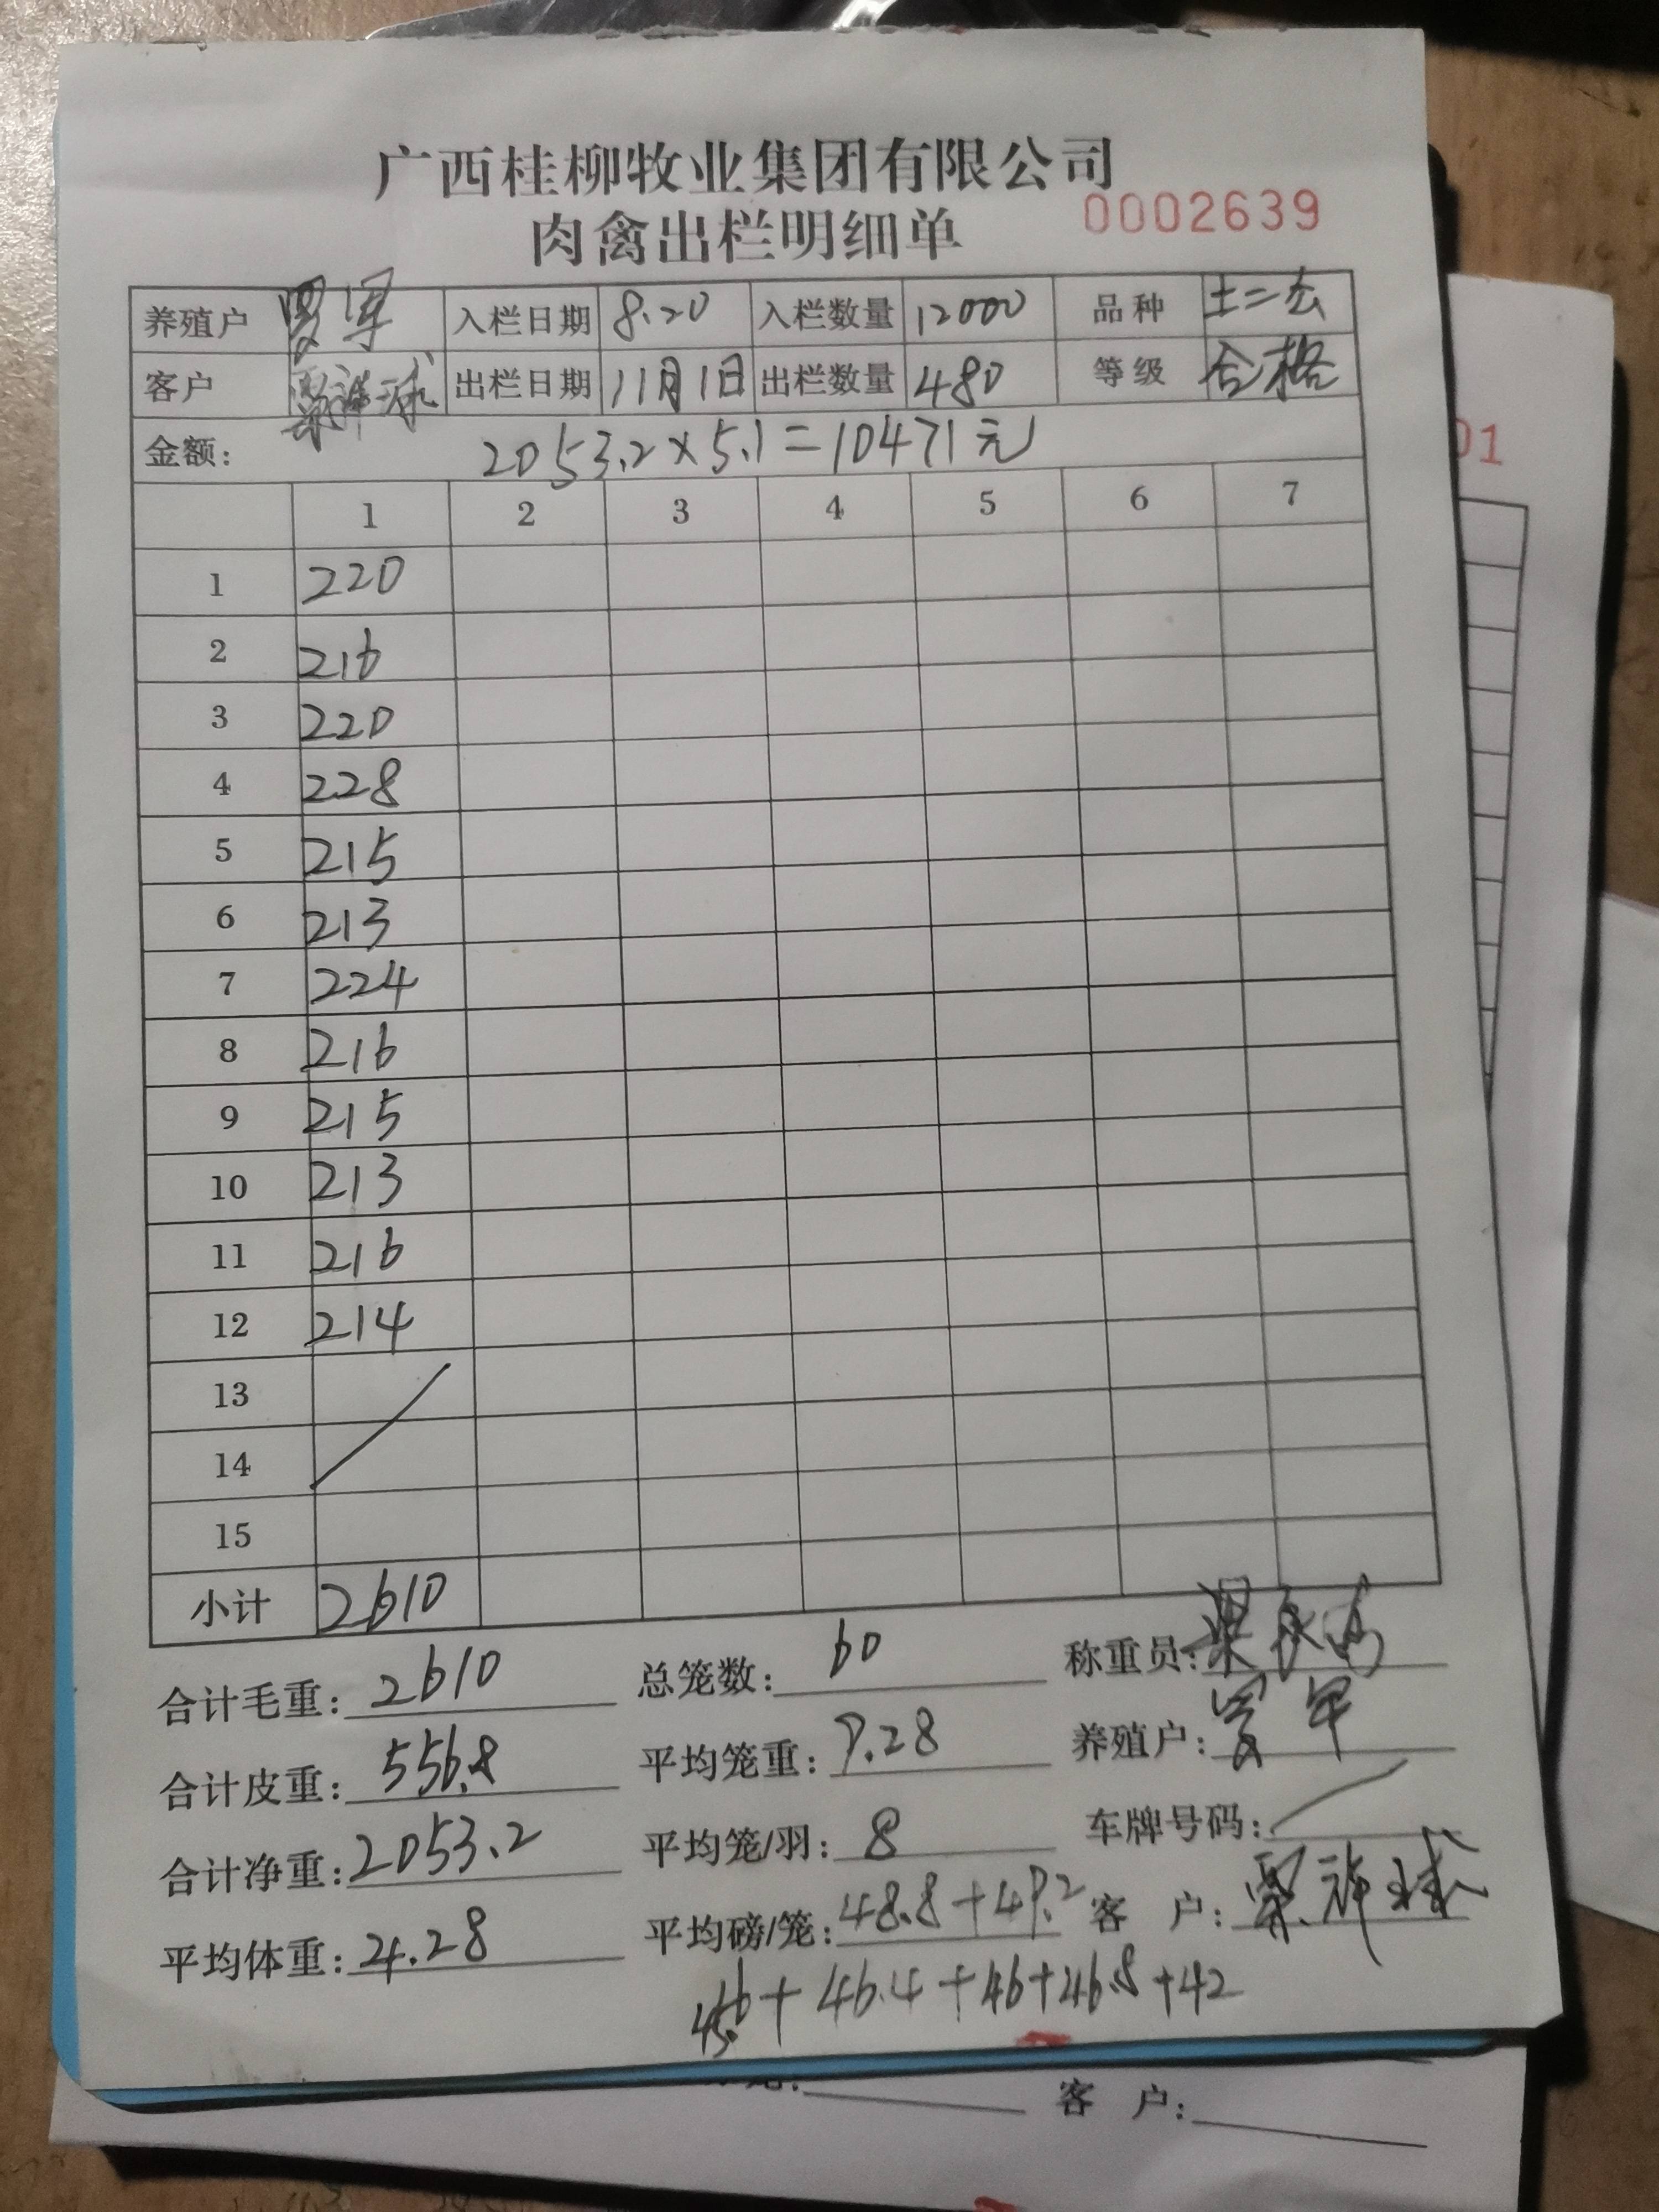 广西桂柳牧业集团有限公司
肉禽出栏明细单 0002639
养殖户 入栏日期 8.20 入栏数量 12000 品种 土二
客户 出栏日期 11月1日 出栏数量 480 等级 合格
金额: 2053.2×5.1=10471元
1 2 3 4 5 6 7
1 220
2 216
3 220
4 228
5 215
6 213
7 224
8 216
9 215
10 213
11 216
12 214
13
14
15
小计 2610
合计毛重: 2610 总笼数: 60 称重员:
合计皮重: 556.8 平均笼重: 9.28 养殖户:
合计净重: 2053.2 平均笼/羽: 8 车牌号码:
平均体重: 4.28 平均磅/笼: 48.8+49.2 客 户:
+46.4+46+46.8+42
客 户:
01